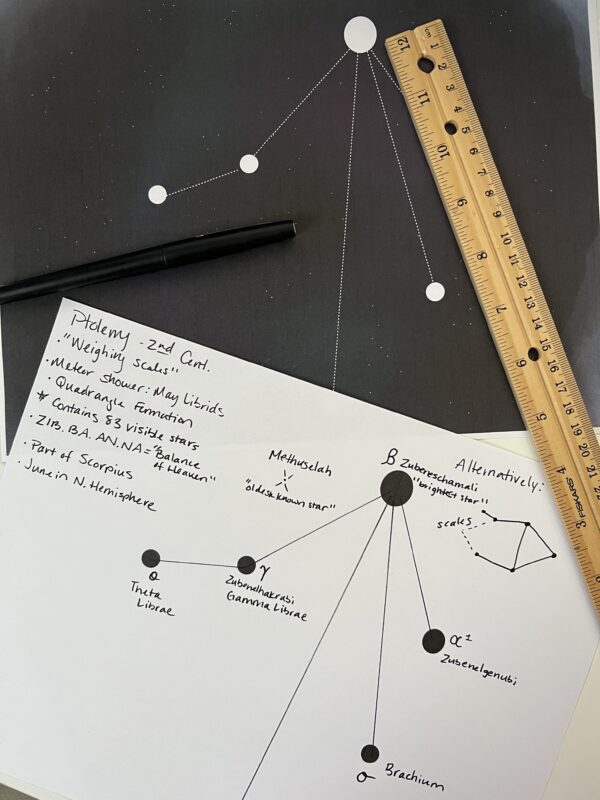 Ptolemy - 2nd Cent.
• "Weighing Scales"
• Meteor Shower: May Librids
• Quadrangle Formation
* Contains 83 visible stars
• ZIB.BA.AN.NA = "Balance
of Heaven"
• Part of Scorpius
• June in N. Hemisphere
Methuselah
"oldest known star"
β Zubeneschamali
"brightest star"
Alternatively:
scales
θ
Theta
Librae
γ
Zubenelhakrabi
Gamma Librae
α¹
Zubenelgenubi
σ
Brachium
cm 1 2 3 4 5 6 7 8 9 10 11 12 13 14 15 16 17 18 19 20 21 22
12 11 10 9 8 7 6 5 4 3
FISKARS